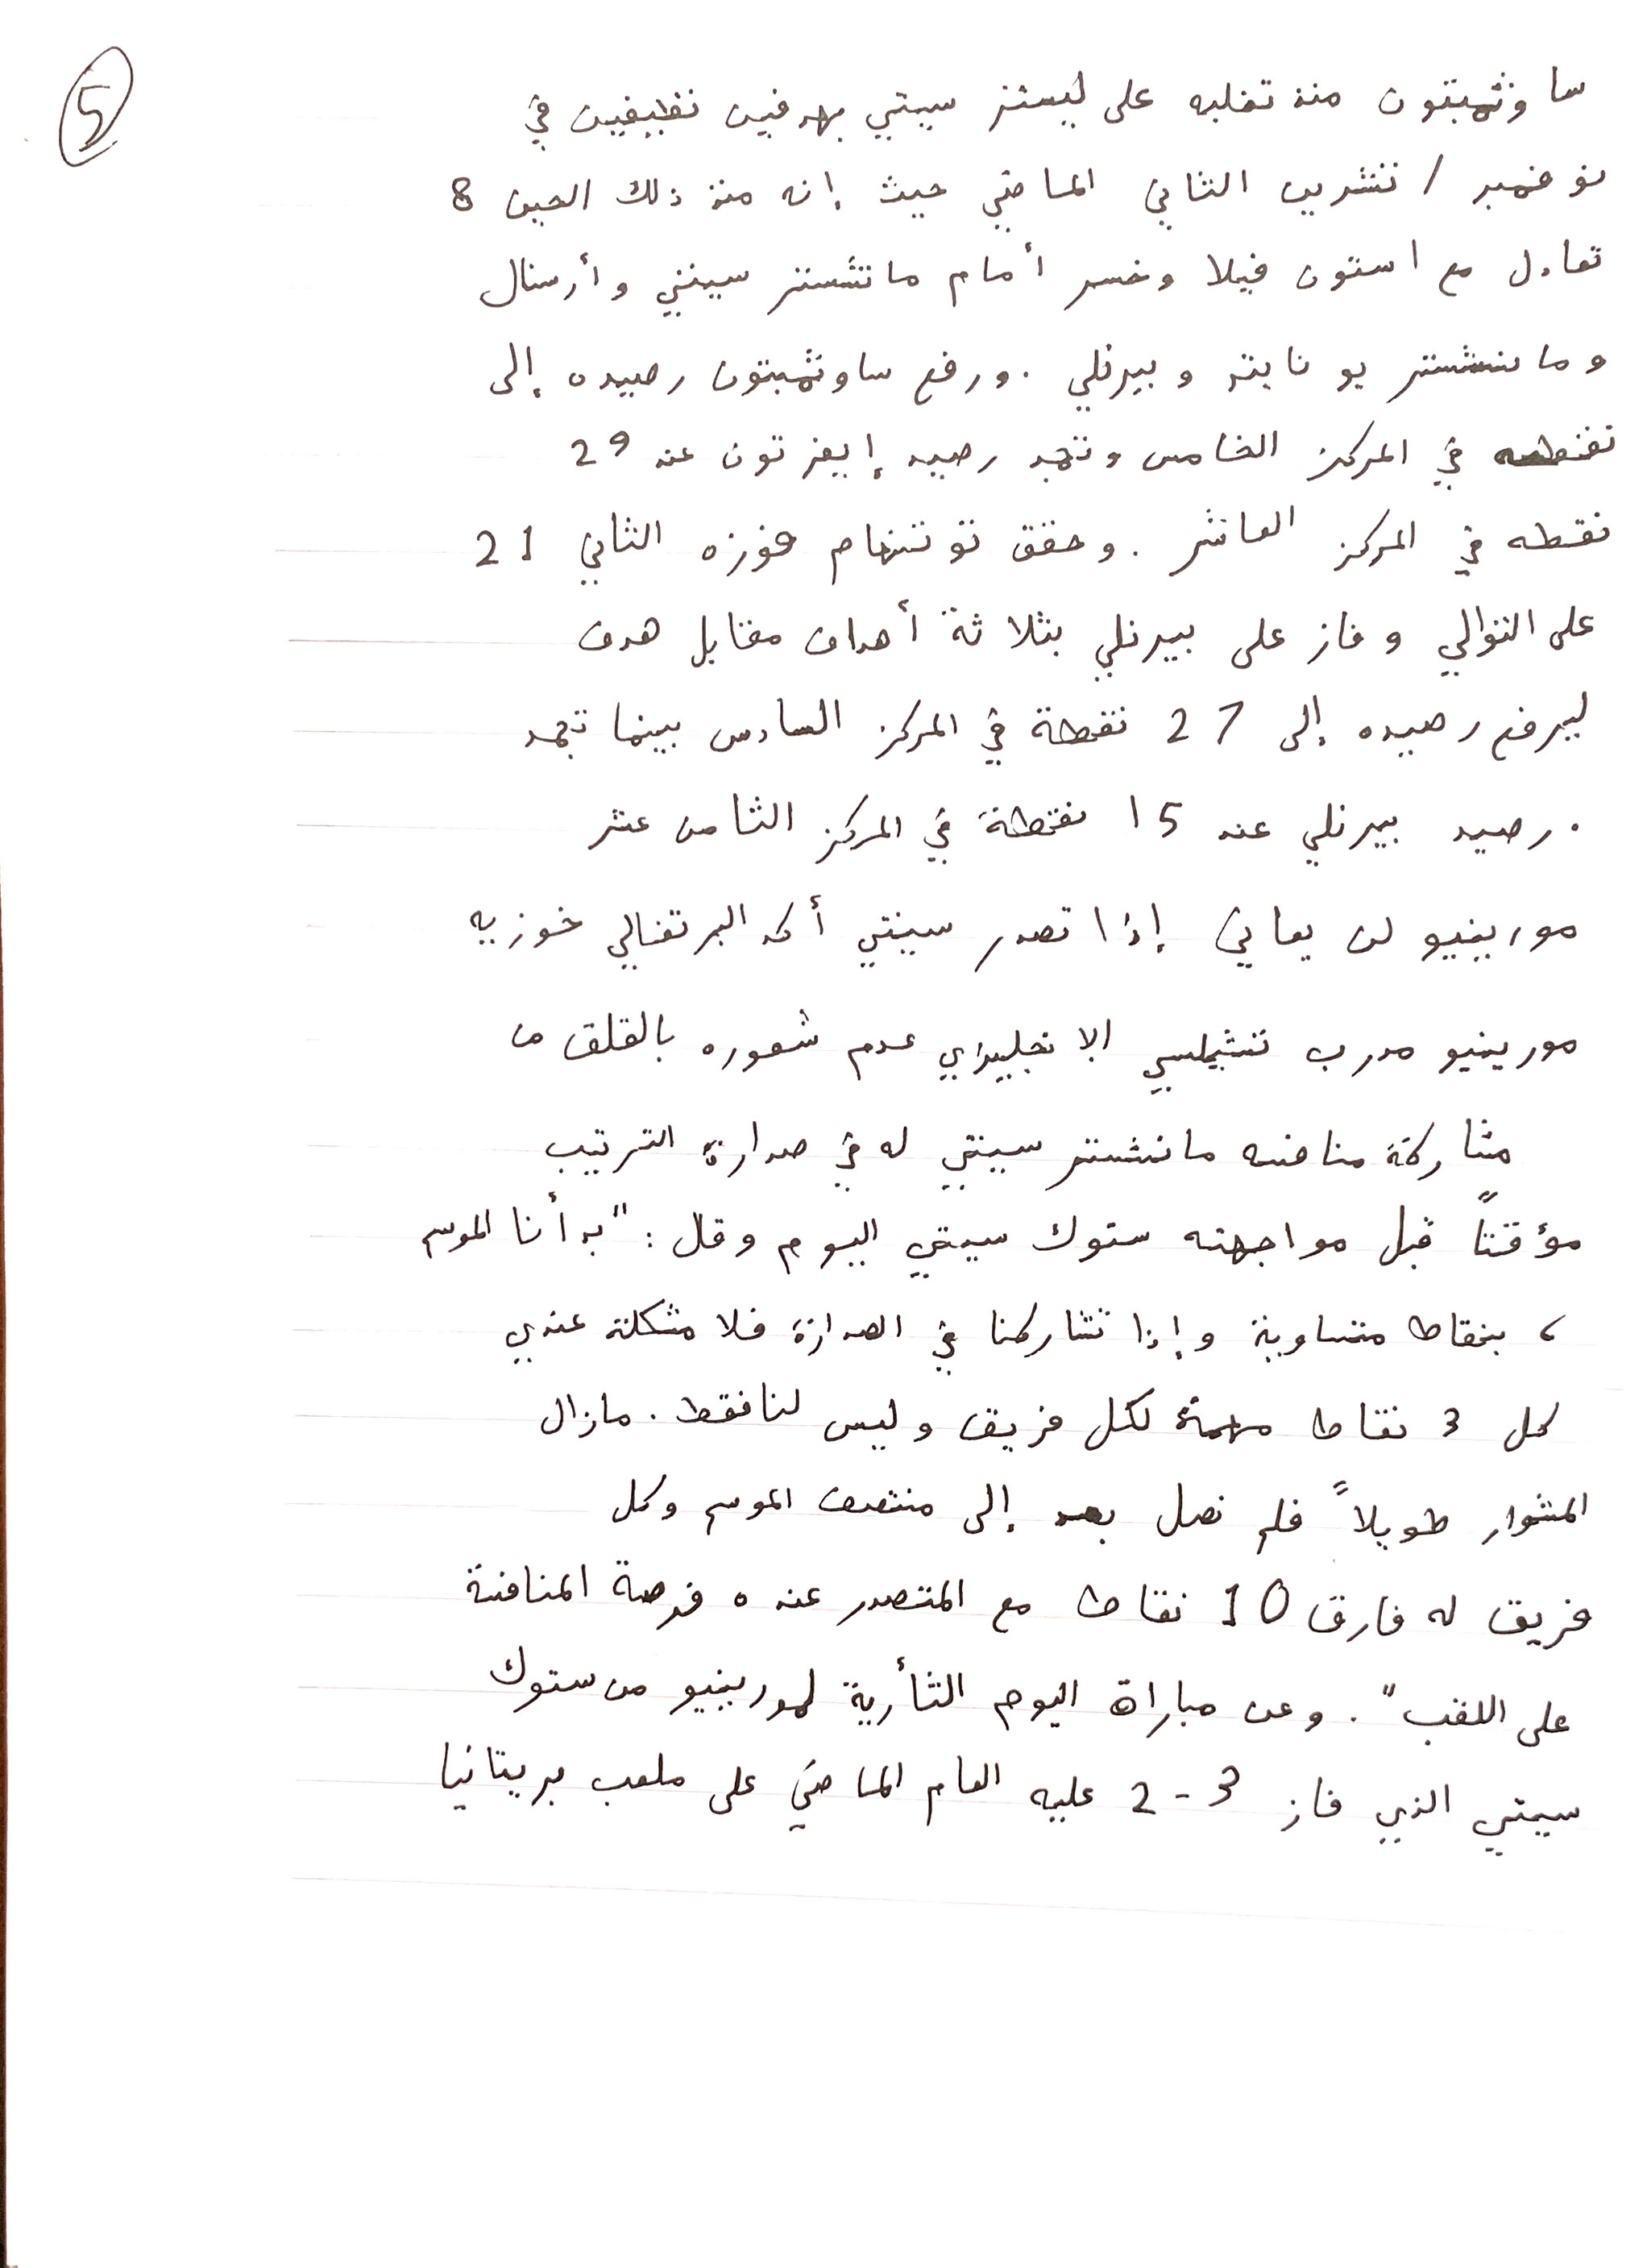 5
ساوثمبتون منذ تغلبه على ليستر سيتي بهدفين نظيفين في
نوفمبر / تشرين الثاني الماضي حيث إنه منذ ذلك الحين 8
تعادل مع استون فيلا وخسر أمام مانشستر سيتي وأرسنال
ومانشستر يونايتد وبيرنلي . ورفع ساوثمبتون رصيده إلى
نقطه في المركز الخامس وتجمد رصيد إيفرتون عند 29
نقطه في المركز العاشر . وحقق توتنهام فوزه الثاني 21
على التوالي وفاز على بيرنلي بثلاثة أهداف مقابل هدف
ليرفع رصيده إلى 27 نقطة في المركز السادس بينما تجمد
. رصيد بيرنلي عند 15 نقطة في المركز الثامن عشر
مورينيو لن يعاني إذا تصدر سيتي أكد البرتغالي خوزيه
مورينيو مدرب تشيلسي الانجليزي عدم شعوره بالقلق من
مشاركة منافسه مانشستر سيتي له في صدارة الترتيب
مؤقتاً قبل مواجهته ستوك سيتي اليوم وقال : "بدأنا الموسم
، بنقاط متساوية وإذا تشاركنا في الصدارة فلا مشكلة عندي
كل 3 نقاط مهمة لكل فريق وليس لنا فقط . مازال
المشوار طويلاً فلم نصل بعد إلى منتصف الموسم وكل
فريق له فارق 10 نقاط مع المتصدر عنده فرصة المنافسة
على اللقب" . وعن مباراة اليوم الثأرية لمورينيو من ستوك
سيتي الذي فاز 3 - 2 عليه العام الماضي على ملعب بريتانيا